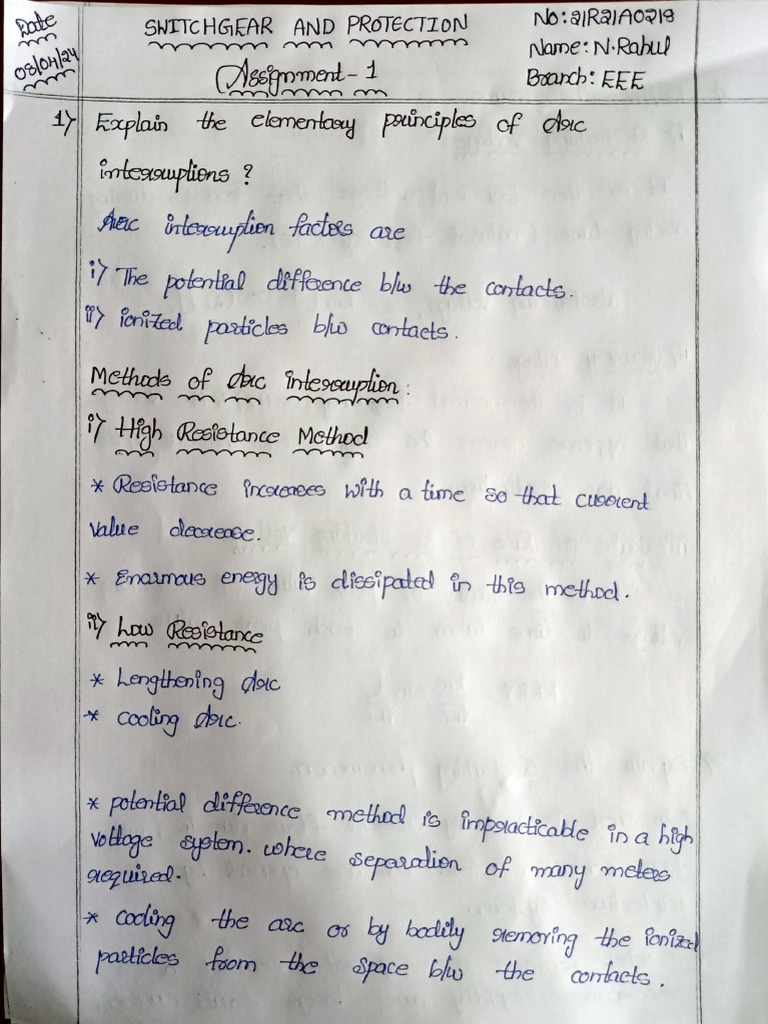 Date
08/04/24
SWITCHGEAR AND PROTECTION
Assignment-1
No: 21R21A0218
Name: N.Rahul
Branch: EEE
1) Explain the elementary principles of Arc
interruptions ?
Arc interruption factors are
i) The potential difference b/w the contacts.
ii) ionized particles b/w contacts.
Methods of Arc interruption:
i) High Resistance Method
* Resistance increases with a time so that current
value decrease.
* Enarmous energy is dissipated in this method.
ii) Low Resistance
* Lengthening Arc
* cooling Arc.
* potential difference method is impracticable in a high
voltage system. where separation of many meters
required.
* cooling the arc or by bodily removing the ionized
particles from the space b/w the contacts.